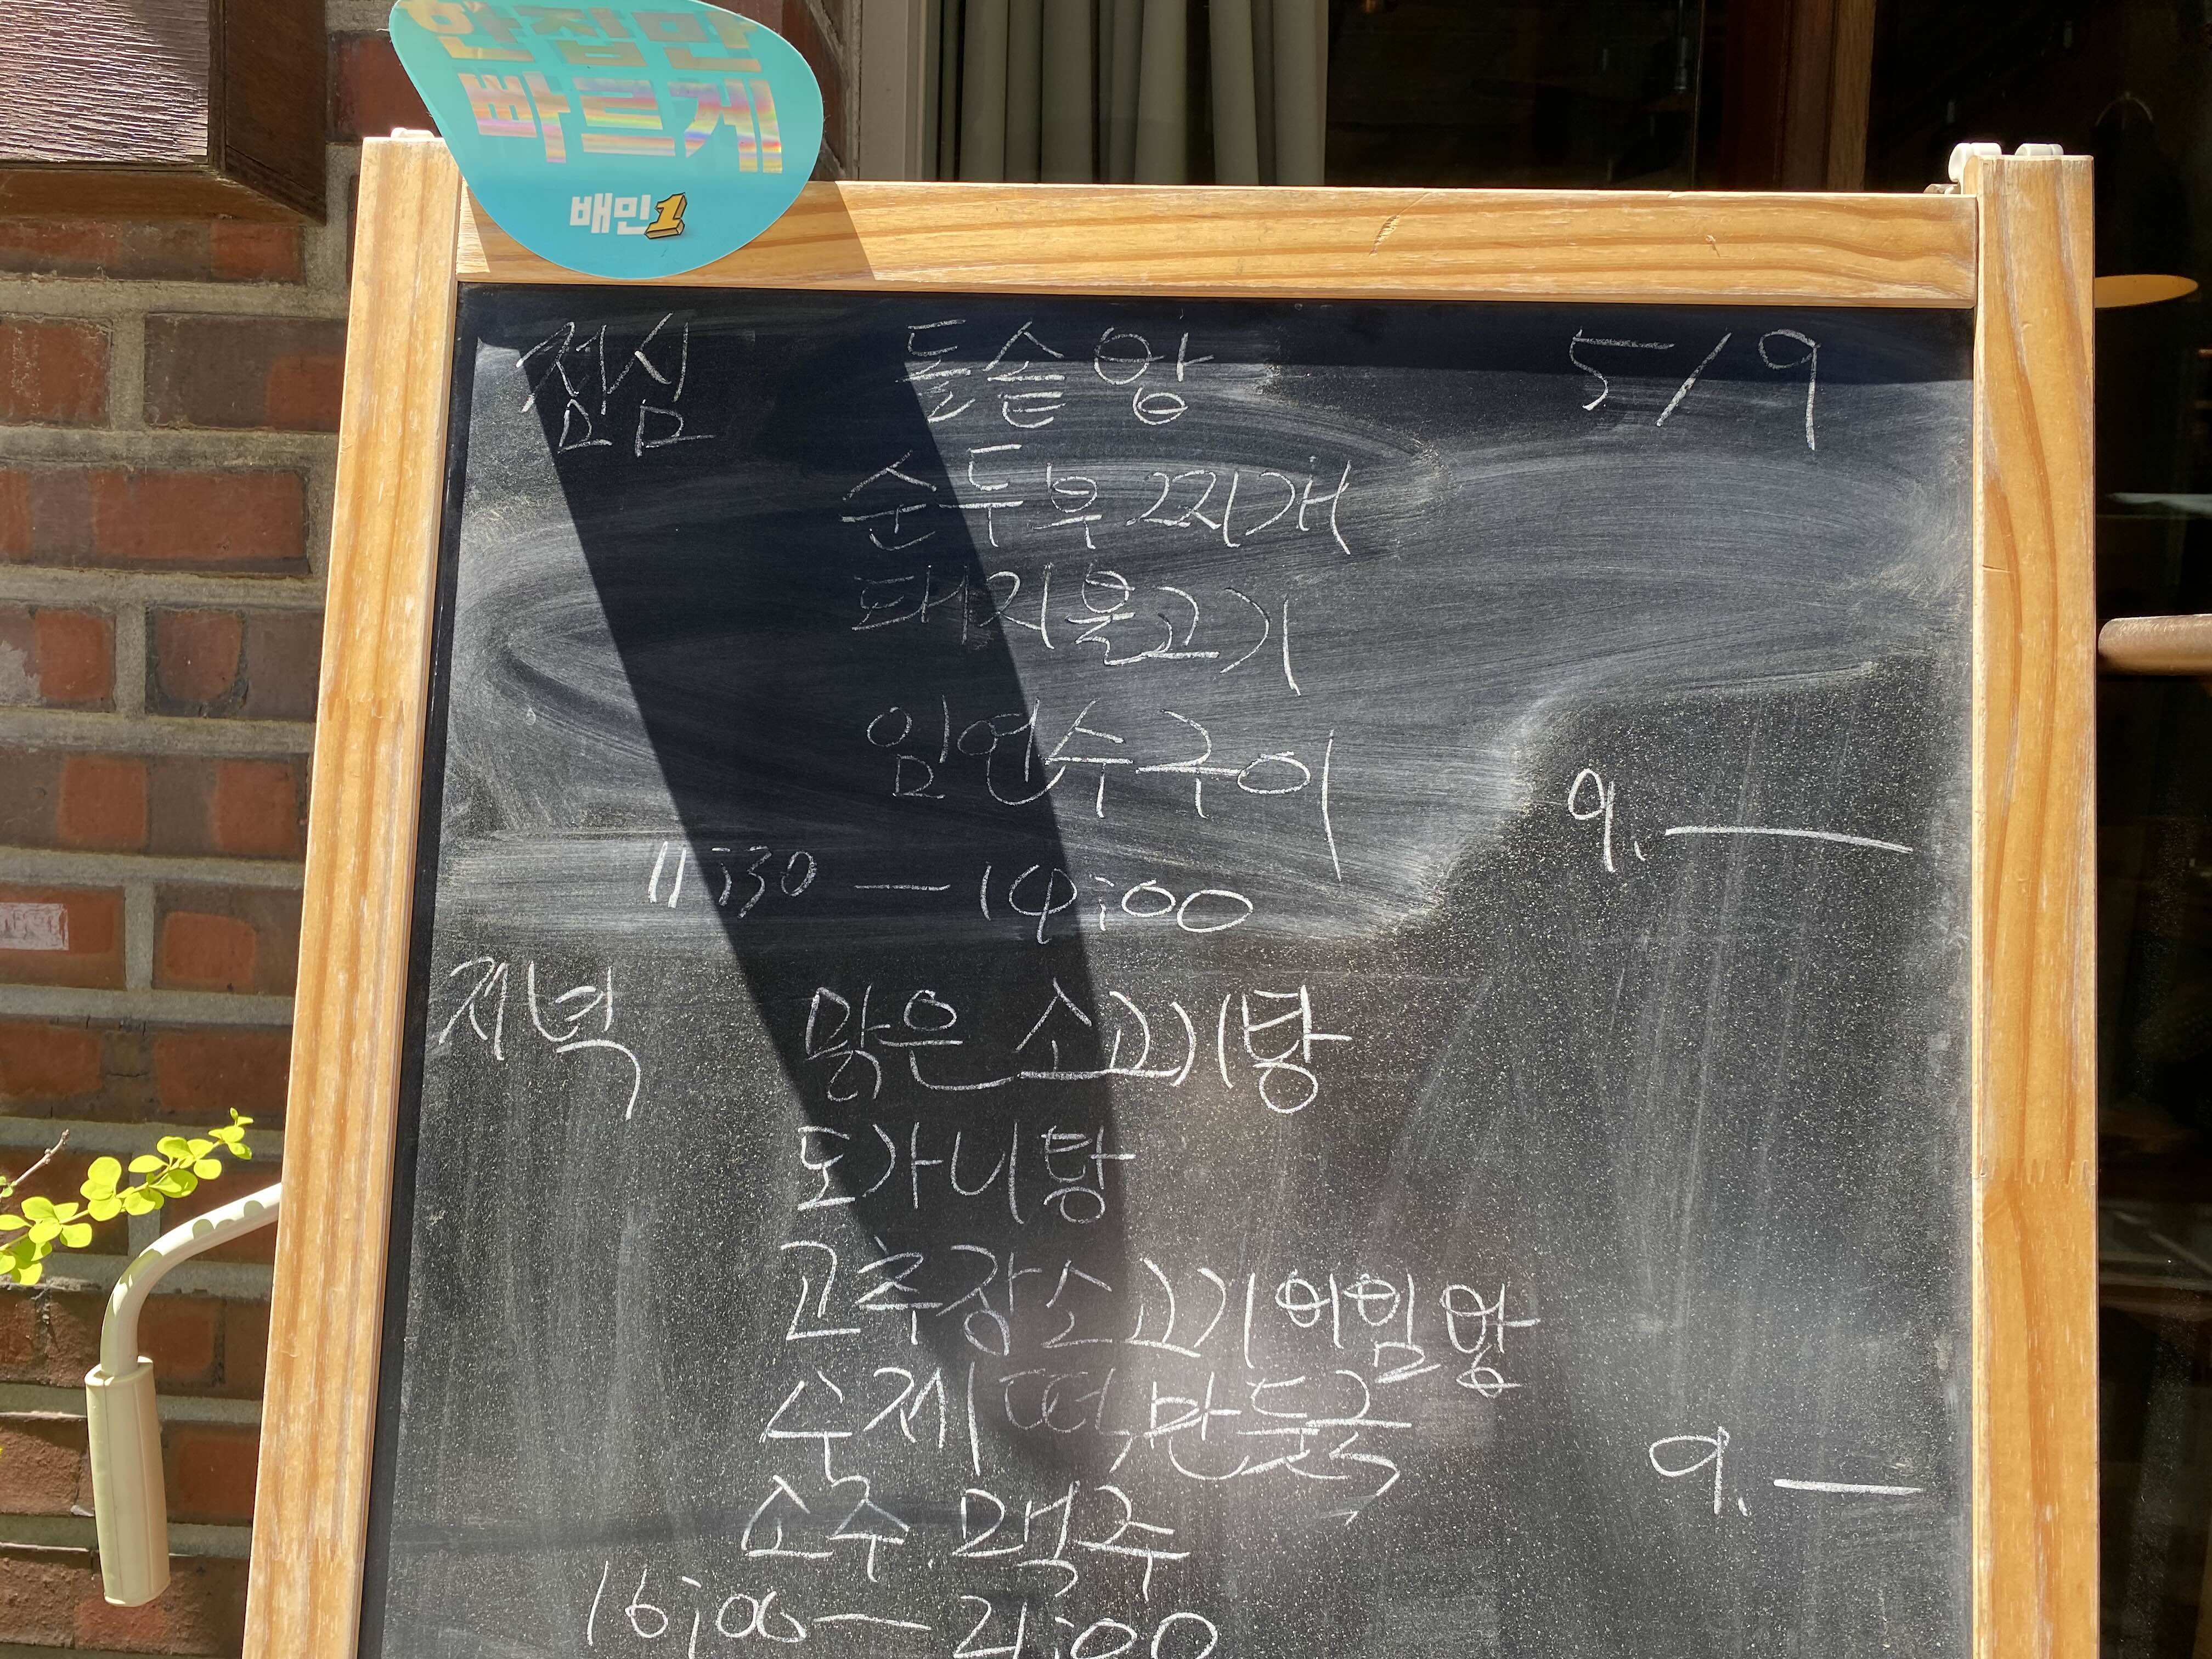 한집만
빠르게
배민1
점심 돌솥밥 5/9
순두부찌개
돼지불고기
임연수구이
9.—
11:30 — 14:00
저녁 맑은 소고기탕
도가니탕
고추장소고기비빔밥
수제떡만둣국
9.—
소주.맥주
16:00 — 21:00